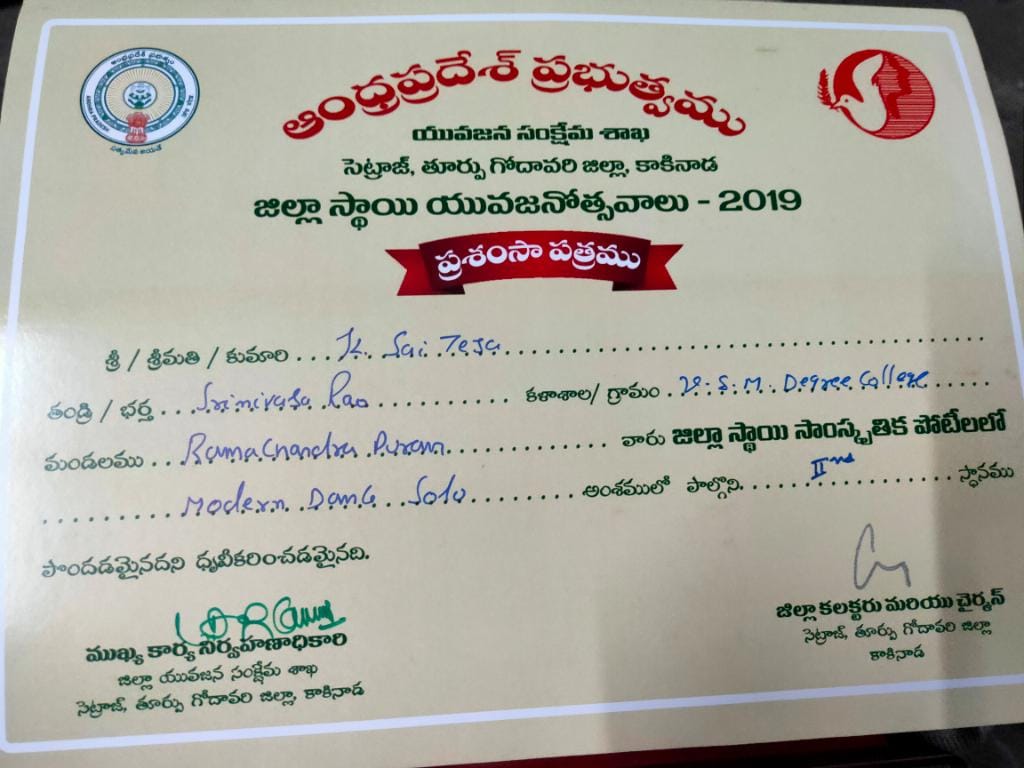 ఆంధ్రప్రదేశ్ ప్రభుత్వము
యువజన సంక్షేమ శాఖ
సెట్రాజ్, తూర్పు గోదావరి జిల్లా, కాకినాడ
జిల్లా స్థాయి యువజనోత్సవాలు - 2019
ప్రశంసా పత్రము
శ్రీ / శ్రీమతి / కుమారి ... K. Sai Teja
తండ్రి / భర్త ... Srinivasa Rao ... కళాశాల/ గ్రామం . V.S.M. Degree College
మండలము ... Ramachandra Puram ... వారు జిల్లా స్థాయి సాంస్కృతిక పోటీలలో
Modern Dance Solo ... అంశములో పాల్గొని. ... IInd ... స్థానము
పొందడమైనదని ధృవీకరించడమైనది.
ముఖ్య కార్య నిర్వహణాధికారి
జిల్లా యువజన సంక్షేమ శాఖ
సెట్రాజ్, తూర్పు గోదావరి జిల్లా, కాకినాడ
జిల్లా కలక్టరు మరియు చైర్మన్
సెట్రాజ్, తూర్పు గోదావరి జిల్లా
కాకినాడ